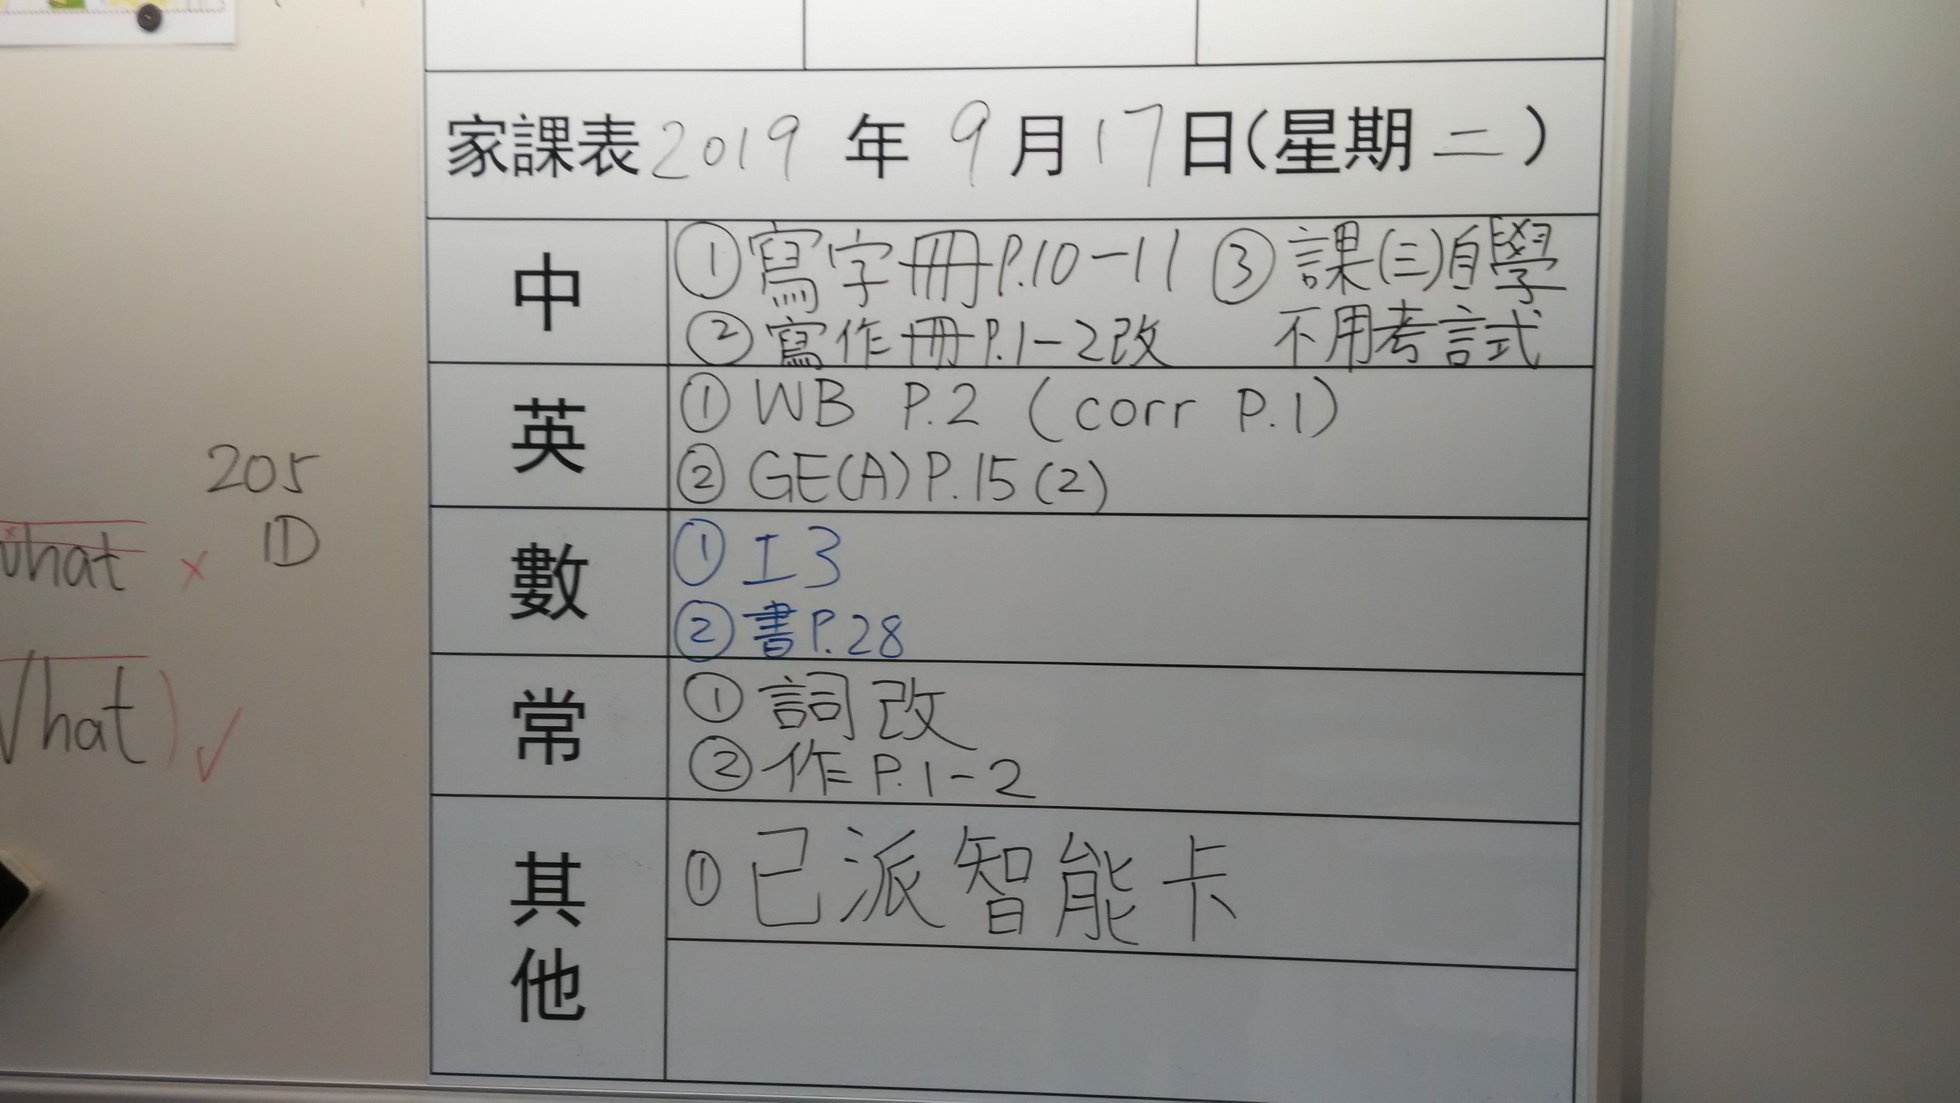 家課表 2019 年 9 月 17 日(星期 二 )
中
① 寫字冊 P.10-11 ③ 課(三)自學
② 寫作冊 P.1-2 改 不用考試
英
① WB P.2 (corr P.1)
② GE(A) P.15 (2)
數
① 工3
② 書 P.28
常
① 詞改
② 作 P.1-2
其他
① 已派智能卡
205
1D
hat ×
hat) ✓